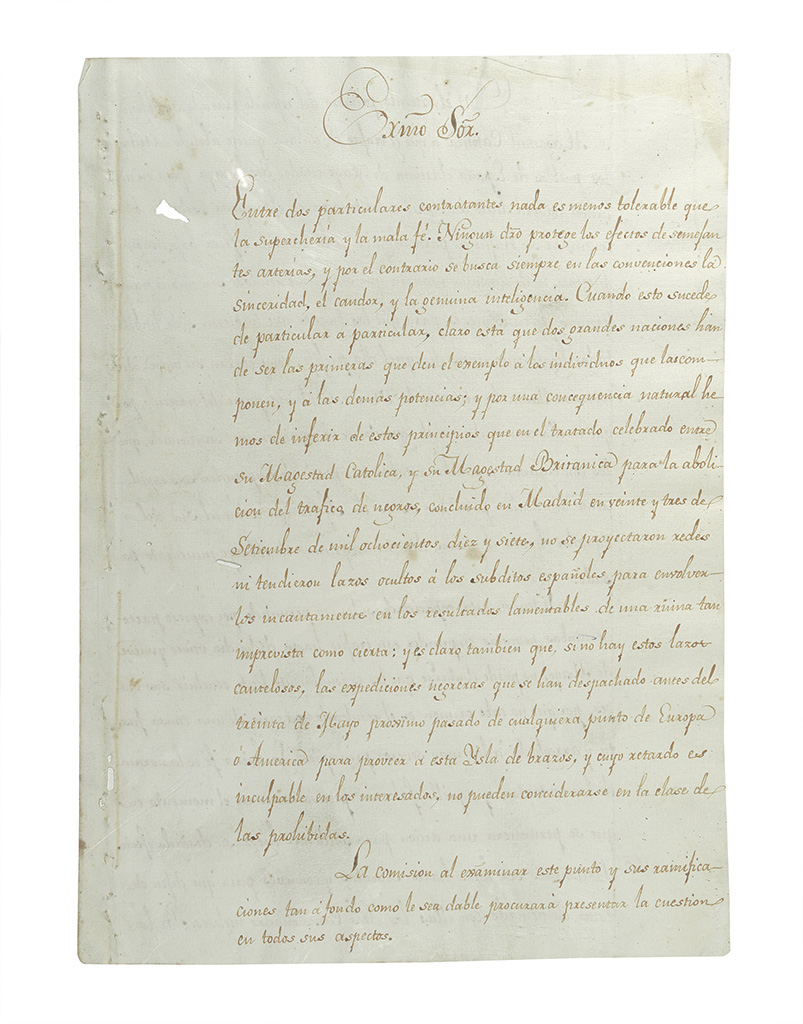 Exmo Sor.
Entre dos particulares contratantes nada es menos tolerable que
la supercheria y la mala fé. Ningun dro protege los efectos de semejan
tes arterias, y por el contrario se busca siempre en las convenciones la
sinceridad, el candor, y la genuina inteligencia. Cuando esto sucede
de particular á particular, claro está que dos grandes naciones han
de ser las primeras que den el exemplo á los individuos que las com-
ponen, y á las demás potencias; y por una concequencia natural he
mos de inferir de estos principios que en el tratado celebrado entre
su Magestad Catolica, y su Magestad Britanica para la aboli-
cion del trafico de negros, concluido en Madrid en veinte y tres de
Setiembre de mil ochocientos diez y siete, no se proyectaron redes
ni tendieron lazos ocultos á los subditos españoles para envolver-
los incautamente en los resultados lamentables de una ruina tan
imprevista como cierta: y es claro tambien que, si no hay estos lazos
cautelosos, las expediciones negreras que se han despachado antes del
treinta de Mayo proximo pasado de cualquiera punto de Europa
ó America para proveer á esta Ysla de brazos, y cuyo retardo es
inculpable en los interesados, no pueden conciderarse en la clase de
las prohibidas.
La comision al examinar este punto y sus ramifica-
ciones tan á fondo como le sea dable procurará presentar la cuestion
en todos sus aspectos.